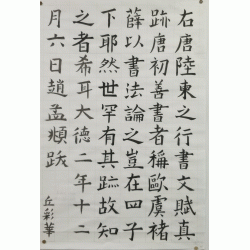 右唐陸柬之行書文賦真
跡唐初善書者稱歐虞褚
薛以書法論之豈在四子
下耶然世罕有其跡故知
之者希耳大德二年十二
月六日趙孟頫跋
丘彩華